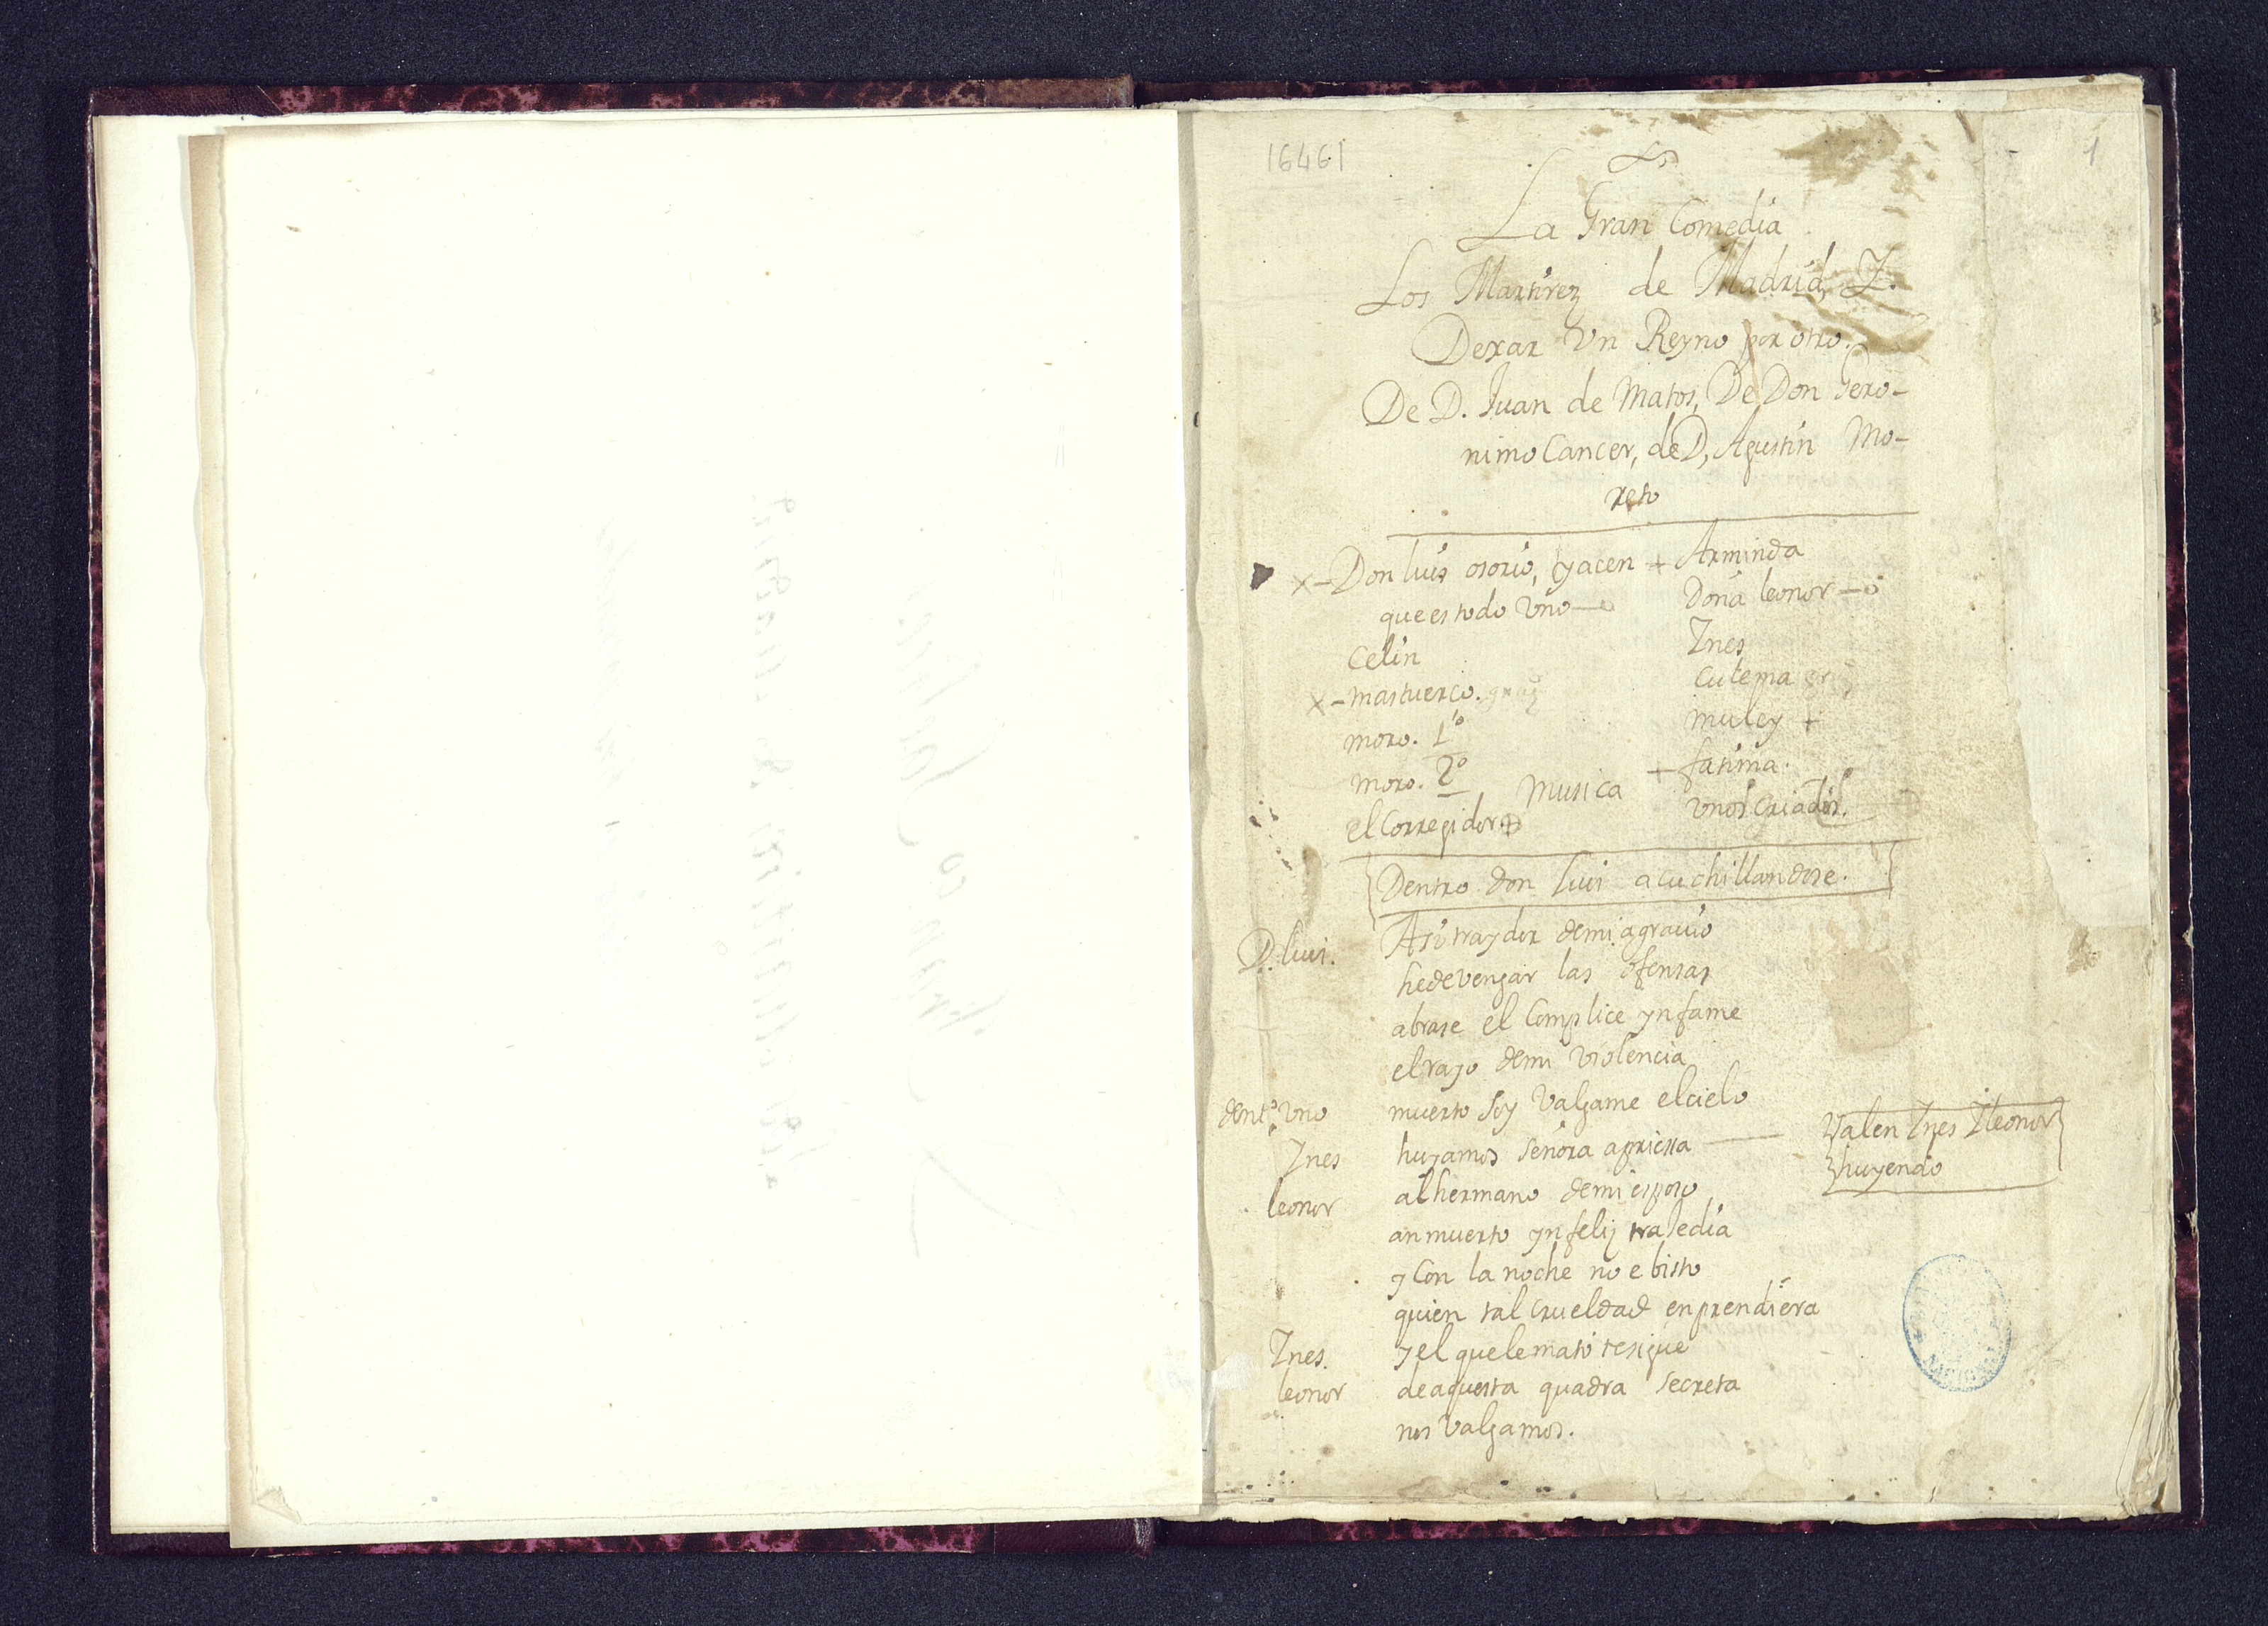 16461
1
La Gran Comedia
Los Martirez de Madrid, Y.
Dexar Vn Reyno por otro.
De D. Juan de Matos, De Don Gero-
nimo Cancer, de D, Agustin Mo-
reto
x-Don luis osorio, hyacen
que es todo Vno
Celin
x-mastuerço.
moro. 1º
moro. 2º
el Corregidor.
Musica
+ Arminda
Doña leonor
Ynes
Culema
muley +
+ fatima.
vnos Criados.
Dentro don luis acuchillandose.
D. luis. Asi traydor de mi agrauio
he de vengar las ofensas
abrase el Complice ynfame
el rayo demi violencia
dentº. Vno muerto soy Valgame el cielo
Ynes huyamos señora apriessa
Salen Ynes Y leonor
huyendo
leonor al hermano demi esposo
an muerto ynfeliz trajedia
y Con la noche no e bisto
quien tal crueldad enprendiera
Ynes. y el que le mato te sigue
leonor de aquesta quadra secreta
nos Valgamos.